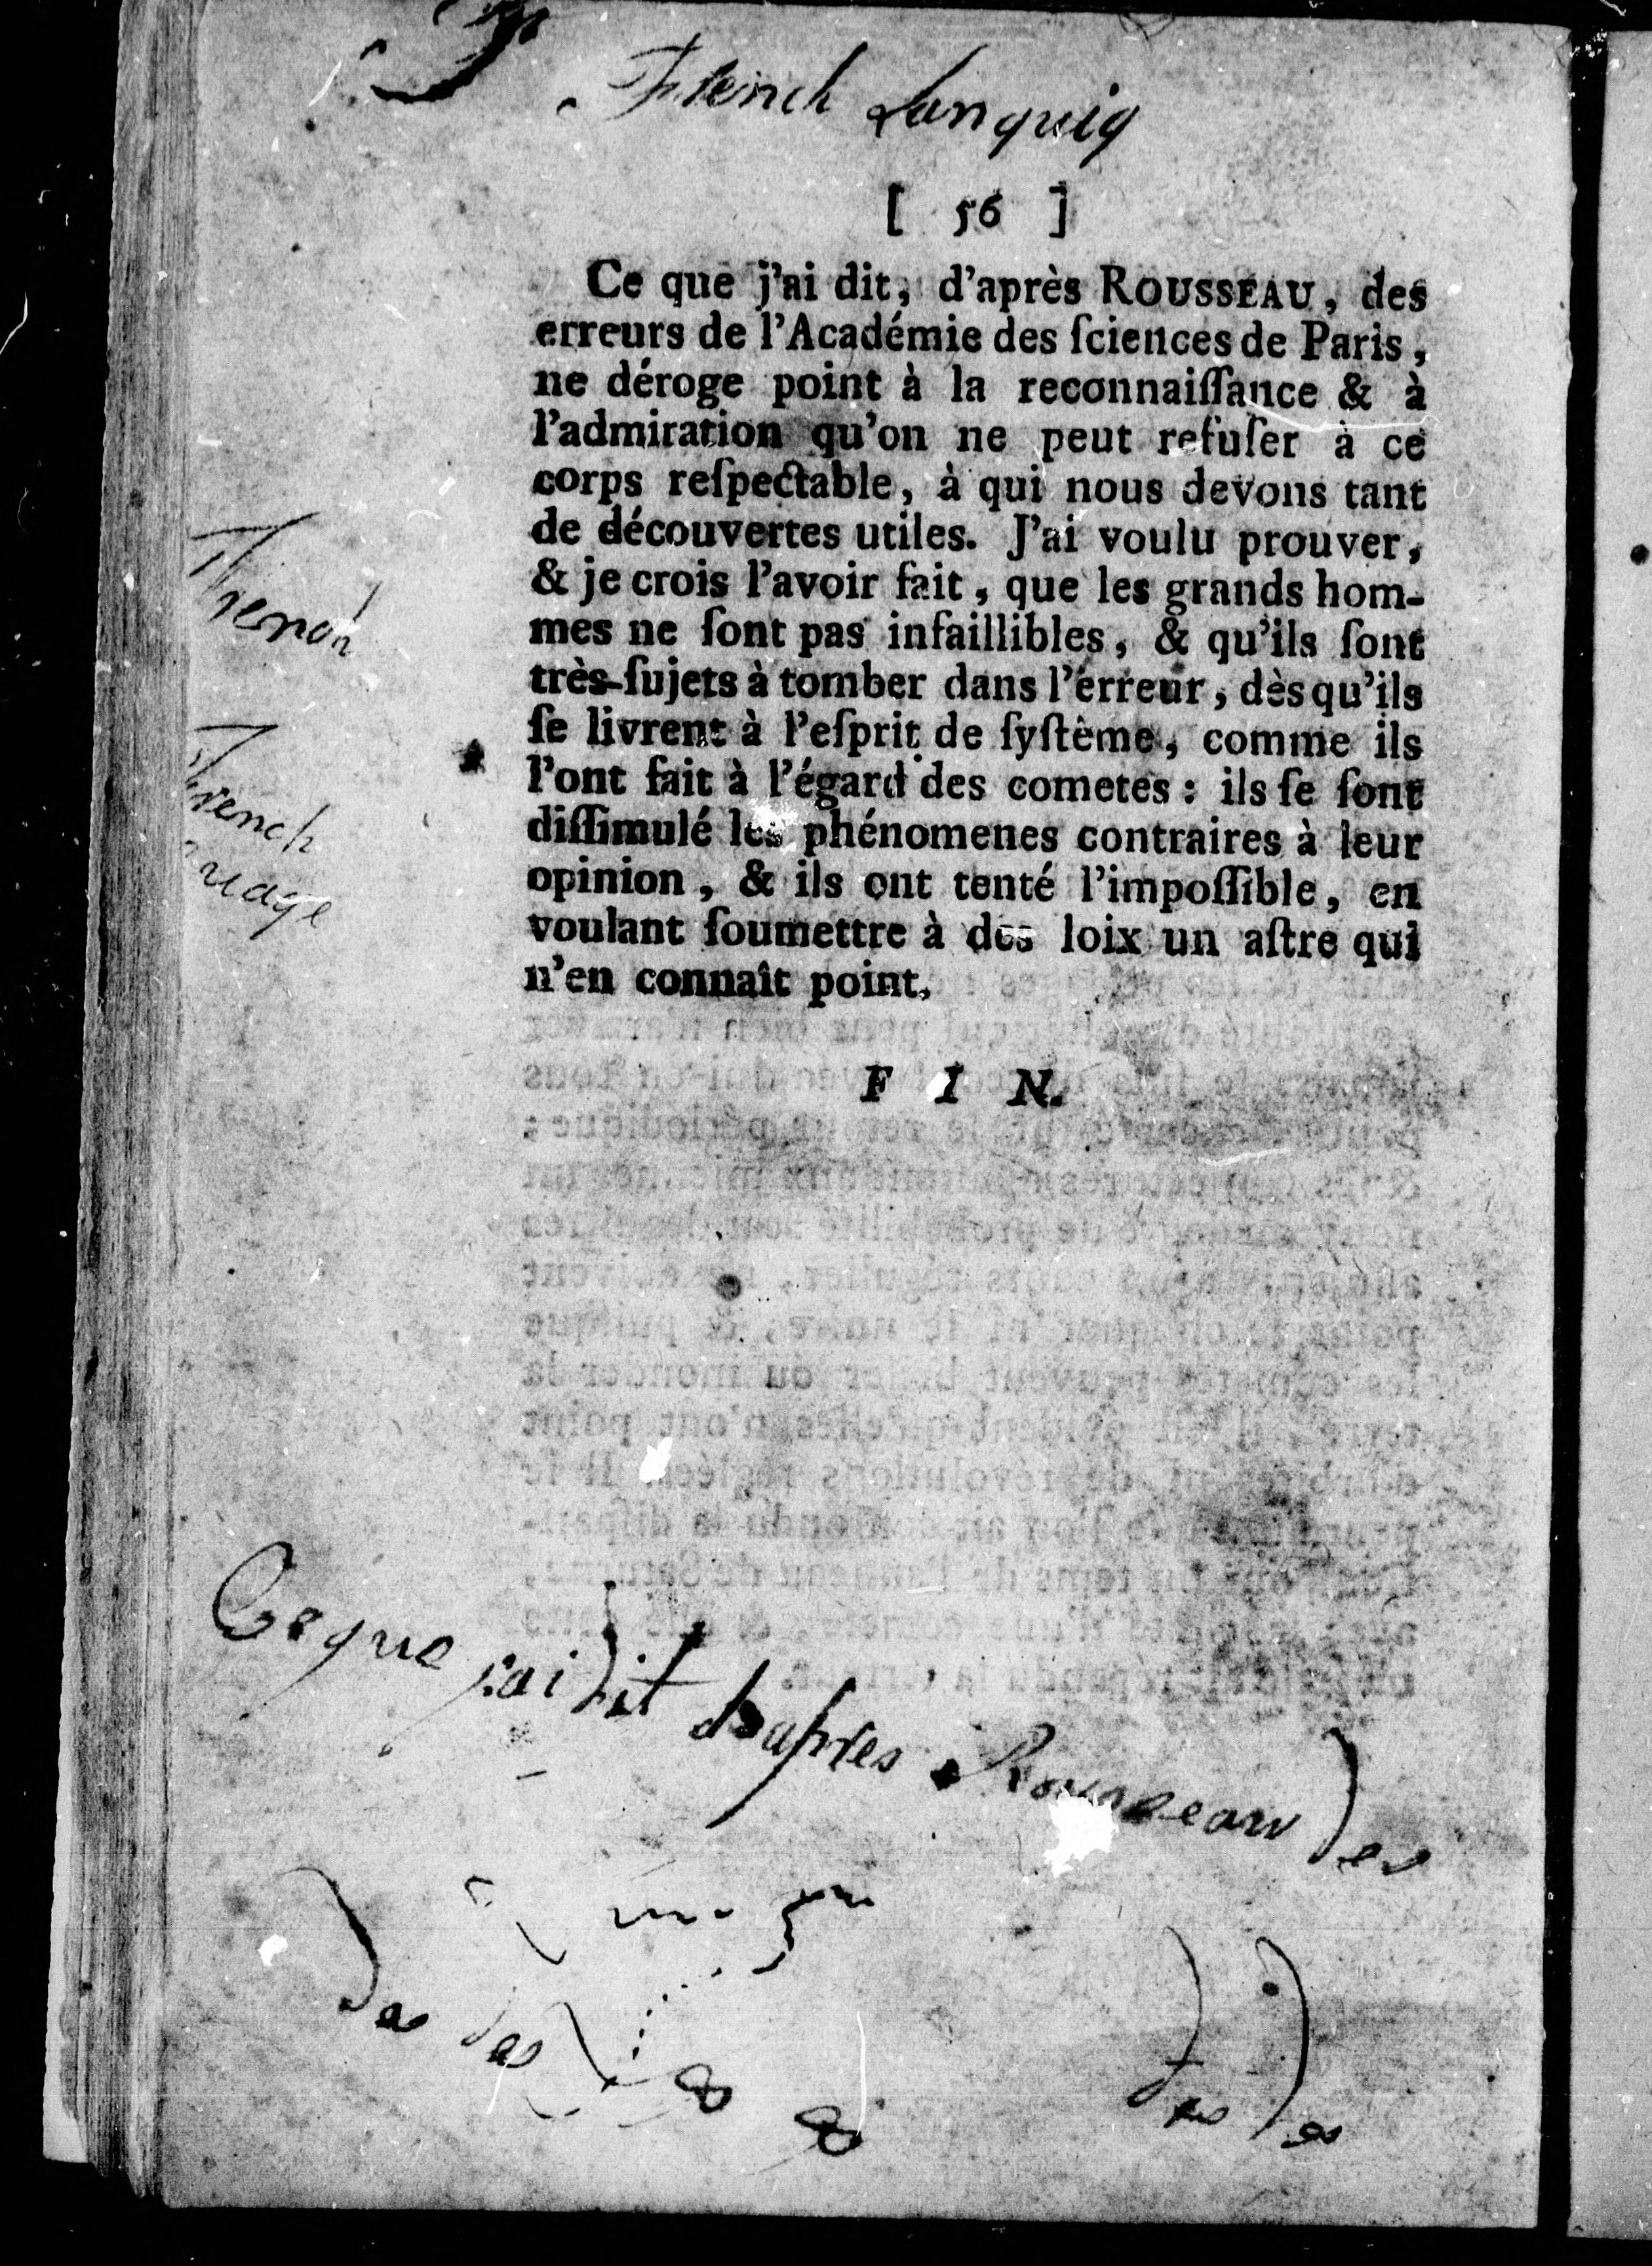 French Languig
[ 56 ]
Ce que j'ai dit, d'après ROUSSEAU, des
erreurs de l'Académie des ſciences de Paris,
ne déroge point à la reconnaiſſance & à
l'admiration qu'on ne peut refuſer à ce
corps reſpectable, à qui nous devons tant
de découvertes utiles. J'ai voulu prouver,
& je crois l'avoir fait, que les grands hom-
mes ne ſont pas infaillibles, & qu'ils ſont
très-ſujets à tomber dans l'erreur, dès qu'ils
ſe livrent à l'eſprit de ſyſtême, comme ils
l'ont fait à l'égard des cometes : ils ſe ſont
diſſimulé les phénomenes contraires à leur
opinion, & ils ont tenté l'impoſſible, en
voulant ſoumettre à des loix un aſtre qui
n'en connaît point.
FIN.
French
uage
Ce que j'ai dit d'apres Rousseau des
des des
des des